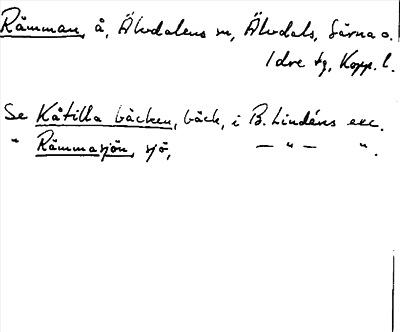 Råmman, å, Älvdalens sn, Älvdals, Särna o.
Idre tg, Kopp. l.
Se Kåtilla bäcken, bäck, i B. Lindéns exc.
" Råmmasjön, sjö, — " — ".